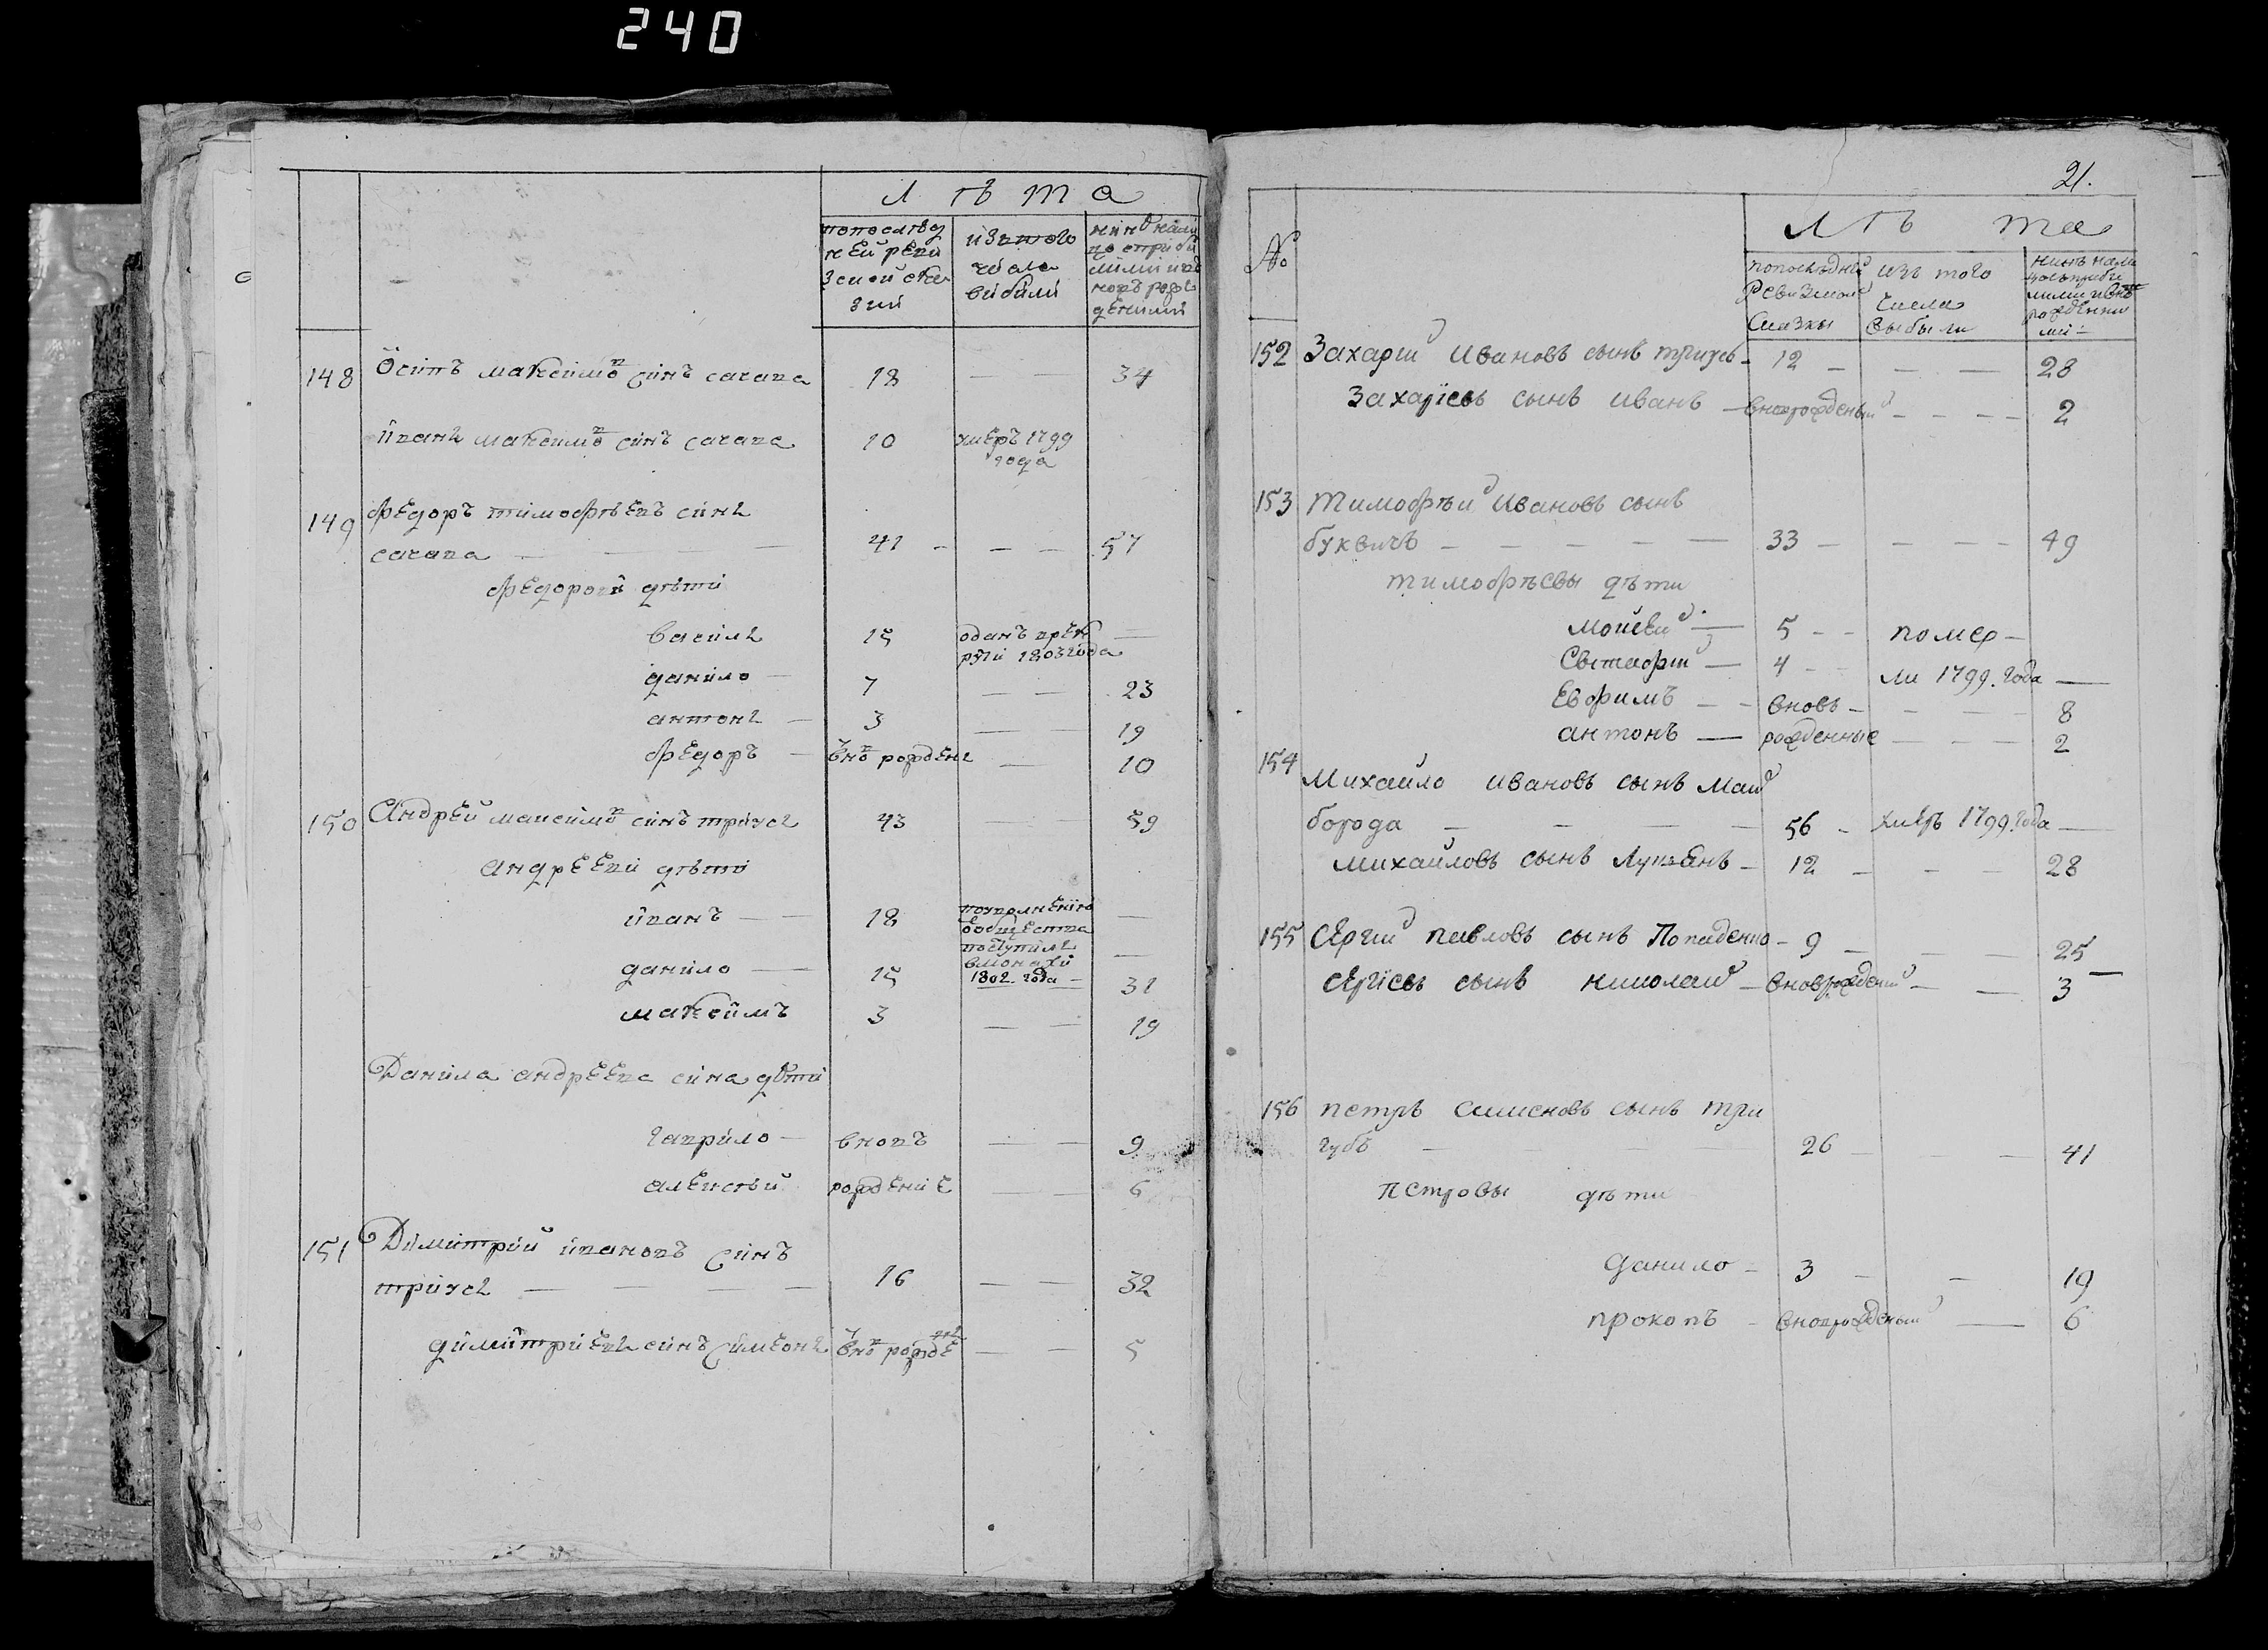 240
Л ѣ т а
попослѣд
ней реви
зской ска
зки
изъ того
числа
вибили
148 Осипъ максимовъ синъ сачава 18 — — 34
иванъ максимовъ синъ сачава 10 умеръ 1799
года
149 Федоръ тимофѣевъ синъ
сачава — — 41 - — — 57
федорови дѣти
василь 15 оданъ врек
рути 1803 года —
данило — 7 — — 23
антонъ — 3 — — 19
федоръ — вновъ рожденъ — 10
150 Андрей максимовъ синъ трицсъ 43 — — 59
андрееви дѣти
иванъ — — 18 —
общества
поступилъ
вмонахи
1802 года —
данило — — 15 — 31
максимъ 3 — — 19
Данила андреева сина дѣти
гаврило — вновъ — — 9
алексѣй рождение — — 6
151 Димитрий ивановъ синъ
трицсъ — — — — 16 — — 32
димитриевъ синъ симеонъ вновъ рожде — — 5
21.
№ Л ѣ та
попослѣдней
Ревизской
Сказки
изъ того
числа
выбыли
152 Захарий Ивановъ сынъ - 12 — — — 28
Захарїевъ сынъ иванъ — вноврожденый - - - — 2
153 Тимофѣй Ивановъ сынъ
буквичъ — — — — — 33 — — — — 49
тимофѣевы дѣти
мойсей — 5 - - помер-
Евстафий — 4 - - ли 1799. года —
Евфимъ — - вновъ - - — 8
антонъ — рожденные — — — 2
154 Михайло ивановъ сынъ Май
борода — — — — 56 - умеръ 1799. года —
михайловъ сынъ Лукянъ - 12 — — — 28
155 Сергий павловъ сынъ Попаденко - 9 — — — 25
сергїевъ сынъ николай — вноврожденый — — 3
156 петръ сименовъ сынъ три
губъ — — — — 26 — — — 41
петровы дѣти
данило — 3 — — 19
прокопъ — вноврожденый — 6